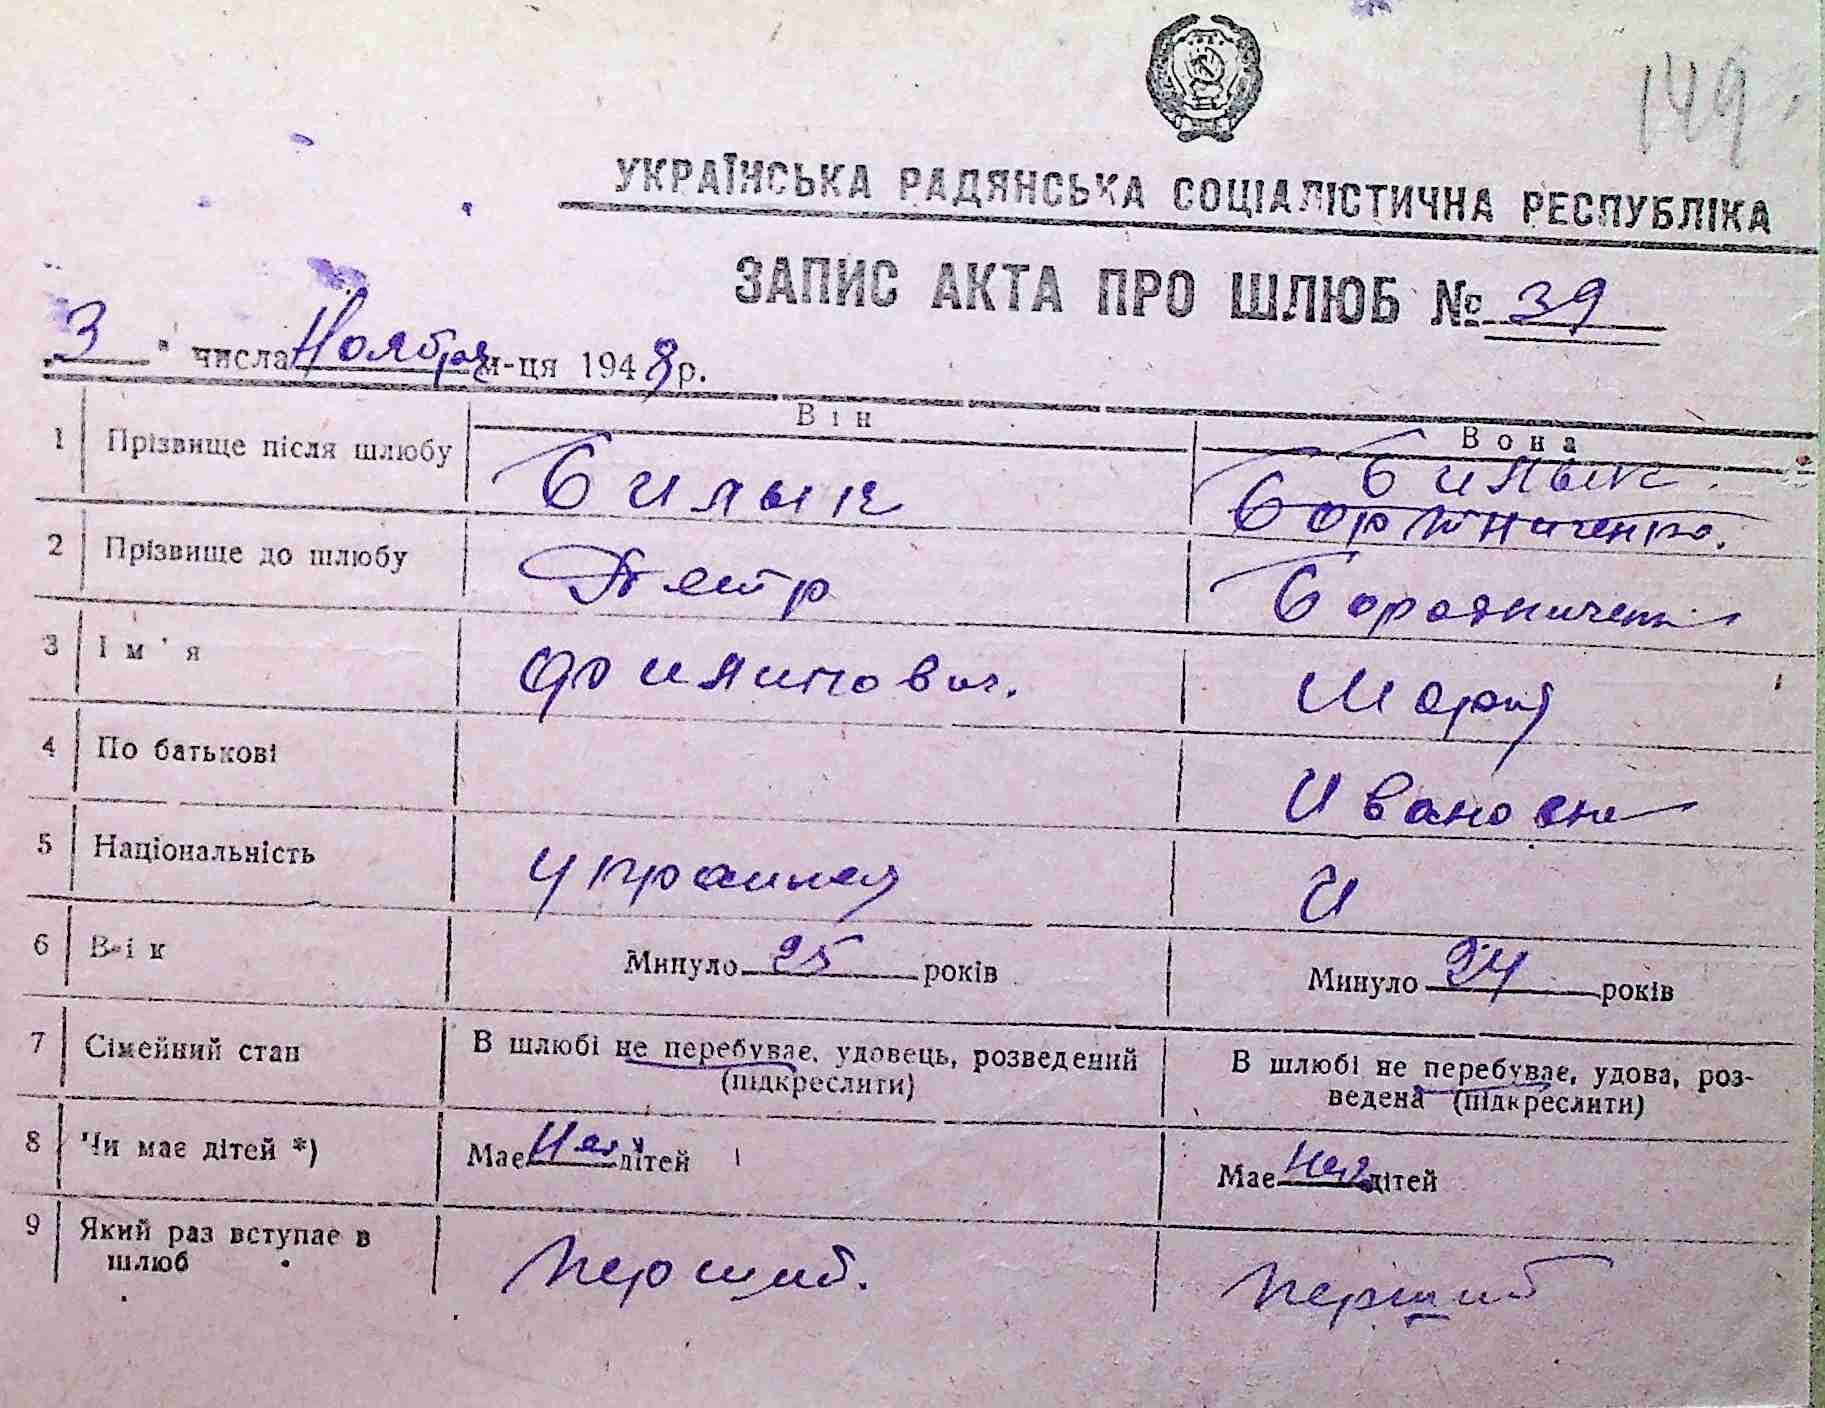 149
УКРАЇНСЬКА РАДЯНСЬКА СОЦІАЛІСТИЧНА РЕСПУБЛІКА
ЗАПИС АКТА ПРО ШЛЮБ № 39
„3" числа Ноября м-ця 1948 р.
Він Вона
1 Прізвище після шлюбу Билык Билык
Бортниченко.
2 Прізвище до шлюбу Петр
3 Ім'я Филипович. Мария
4 По батькові Ивановне
5 Національність украинец И
6 Вік Минуло 25 років Минуло 24 років
7 Сімейний стан В шлюбі не перебуває, удовець, розведений (підкреслити) В шлюбі не перебуває, удова, роз-
ведена (підкреслити)
8 Чи має дітей *) Має Нет дітей Має Нет дітей
9 Який раз вступає в
шлюб Перший. Перший